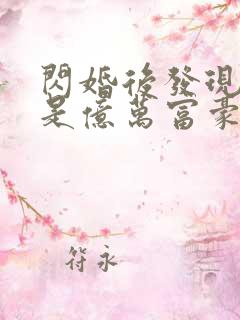 閃婚後發現
是億萬富豪
符永